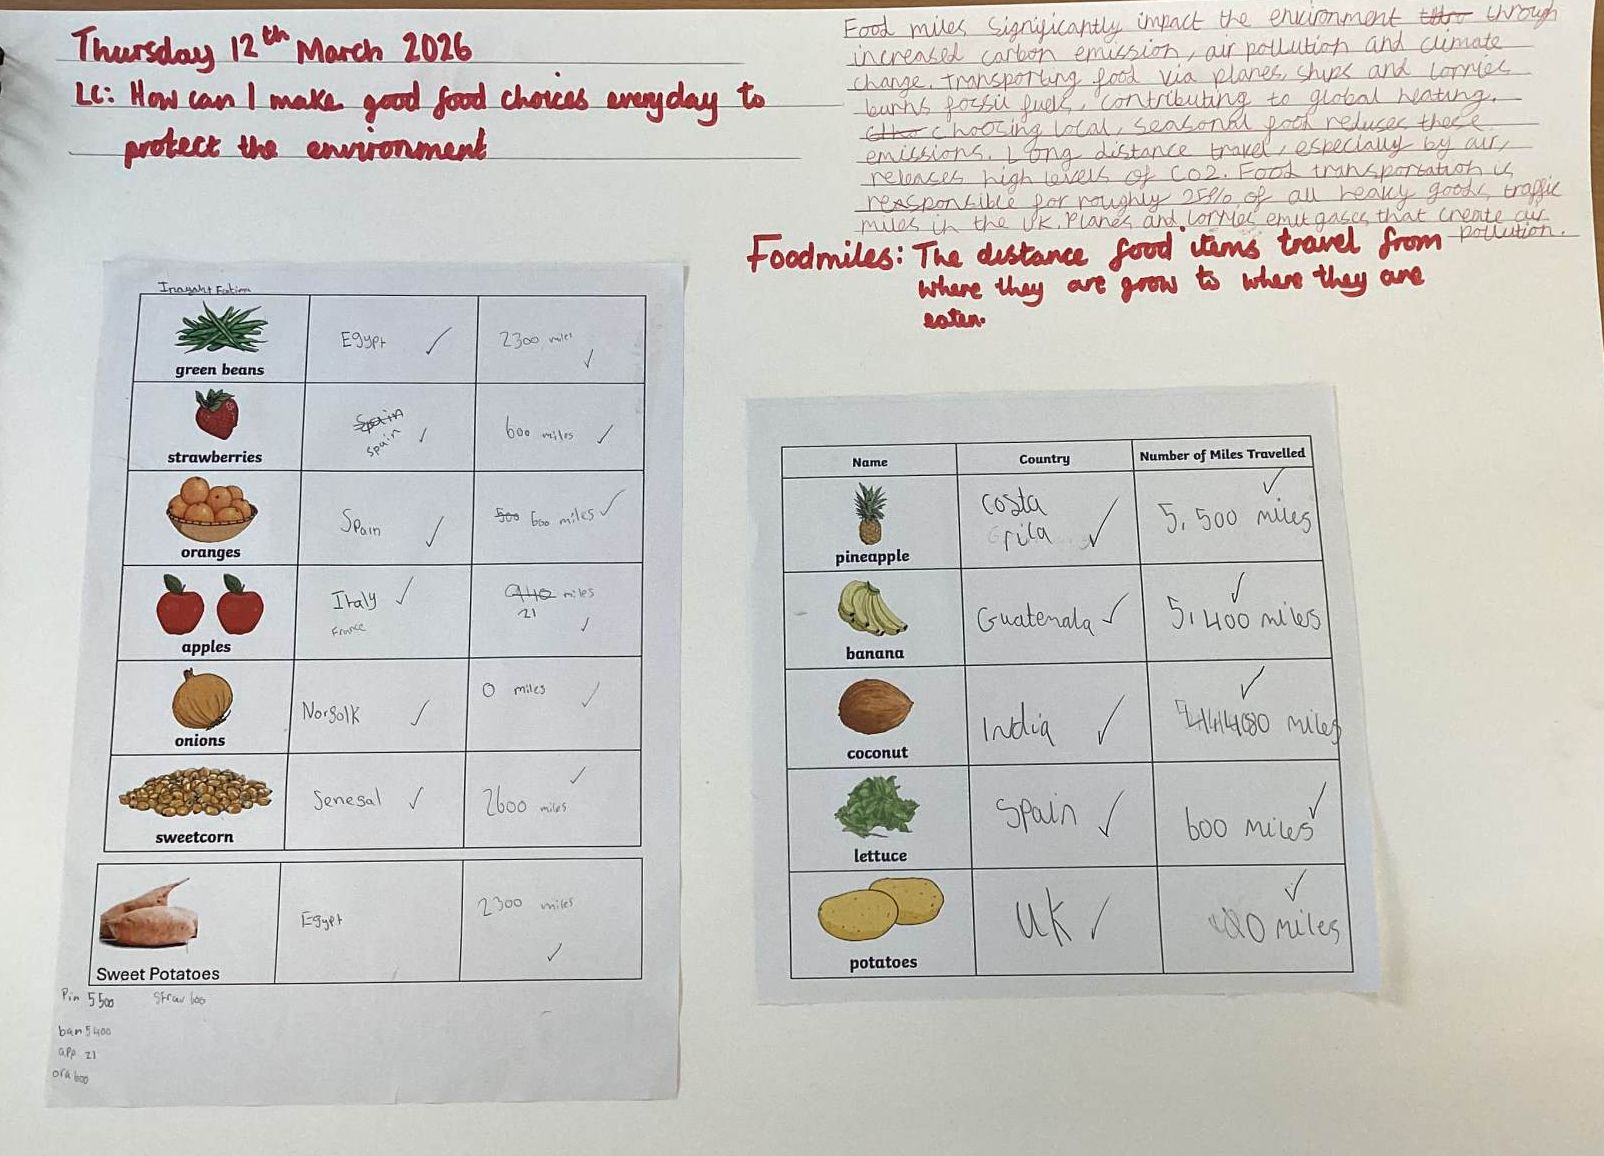 Thursday 12th March 2026
LC: How can I make good food choices everyday to
protect the environment
Food miles significantly impact the environment through
increased carbon emission, air pollution and climate
change. Transporting food via planes, ships and lorries
burns fossil fuels, contributing to global heating.
choosing local, seasonal food reduces these
emissions. Long distance travel, especially by air,
releases high levels of CO2. Food transportation is
reasponsible for roughly 25% of all heavy goods traffic
miles in the UK. Planes and lorries emit gases that create air
pollution.
Foodmiles: The distance food items travel from
where they are grow to where they are
eaten.
green beans Egypt 2300 miles
strawberries Spain Spain 600 miles
oranges Spain 500 600 miles
apples Italy France miles 21
onions Norfolk 0 miles
sweetcorn Senegal 2600 miles
Sweet Potatoes Egypt 2300 miles
Pin 5500 Straw 600
ban 5400
app 21
ora 600
Name Country Number of Miles Travelled
pineapple Costa rica 5,500 miles
banana Guatemala 5,400 miles
coconut India miles
lettuce Spain 600 miles
potatoes UK miles